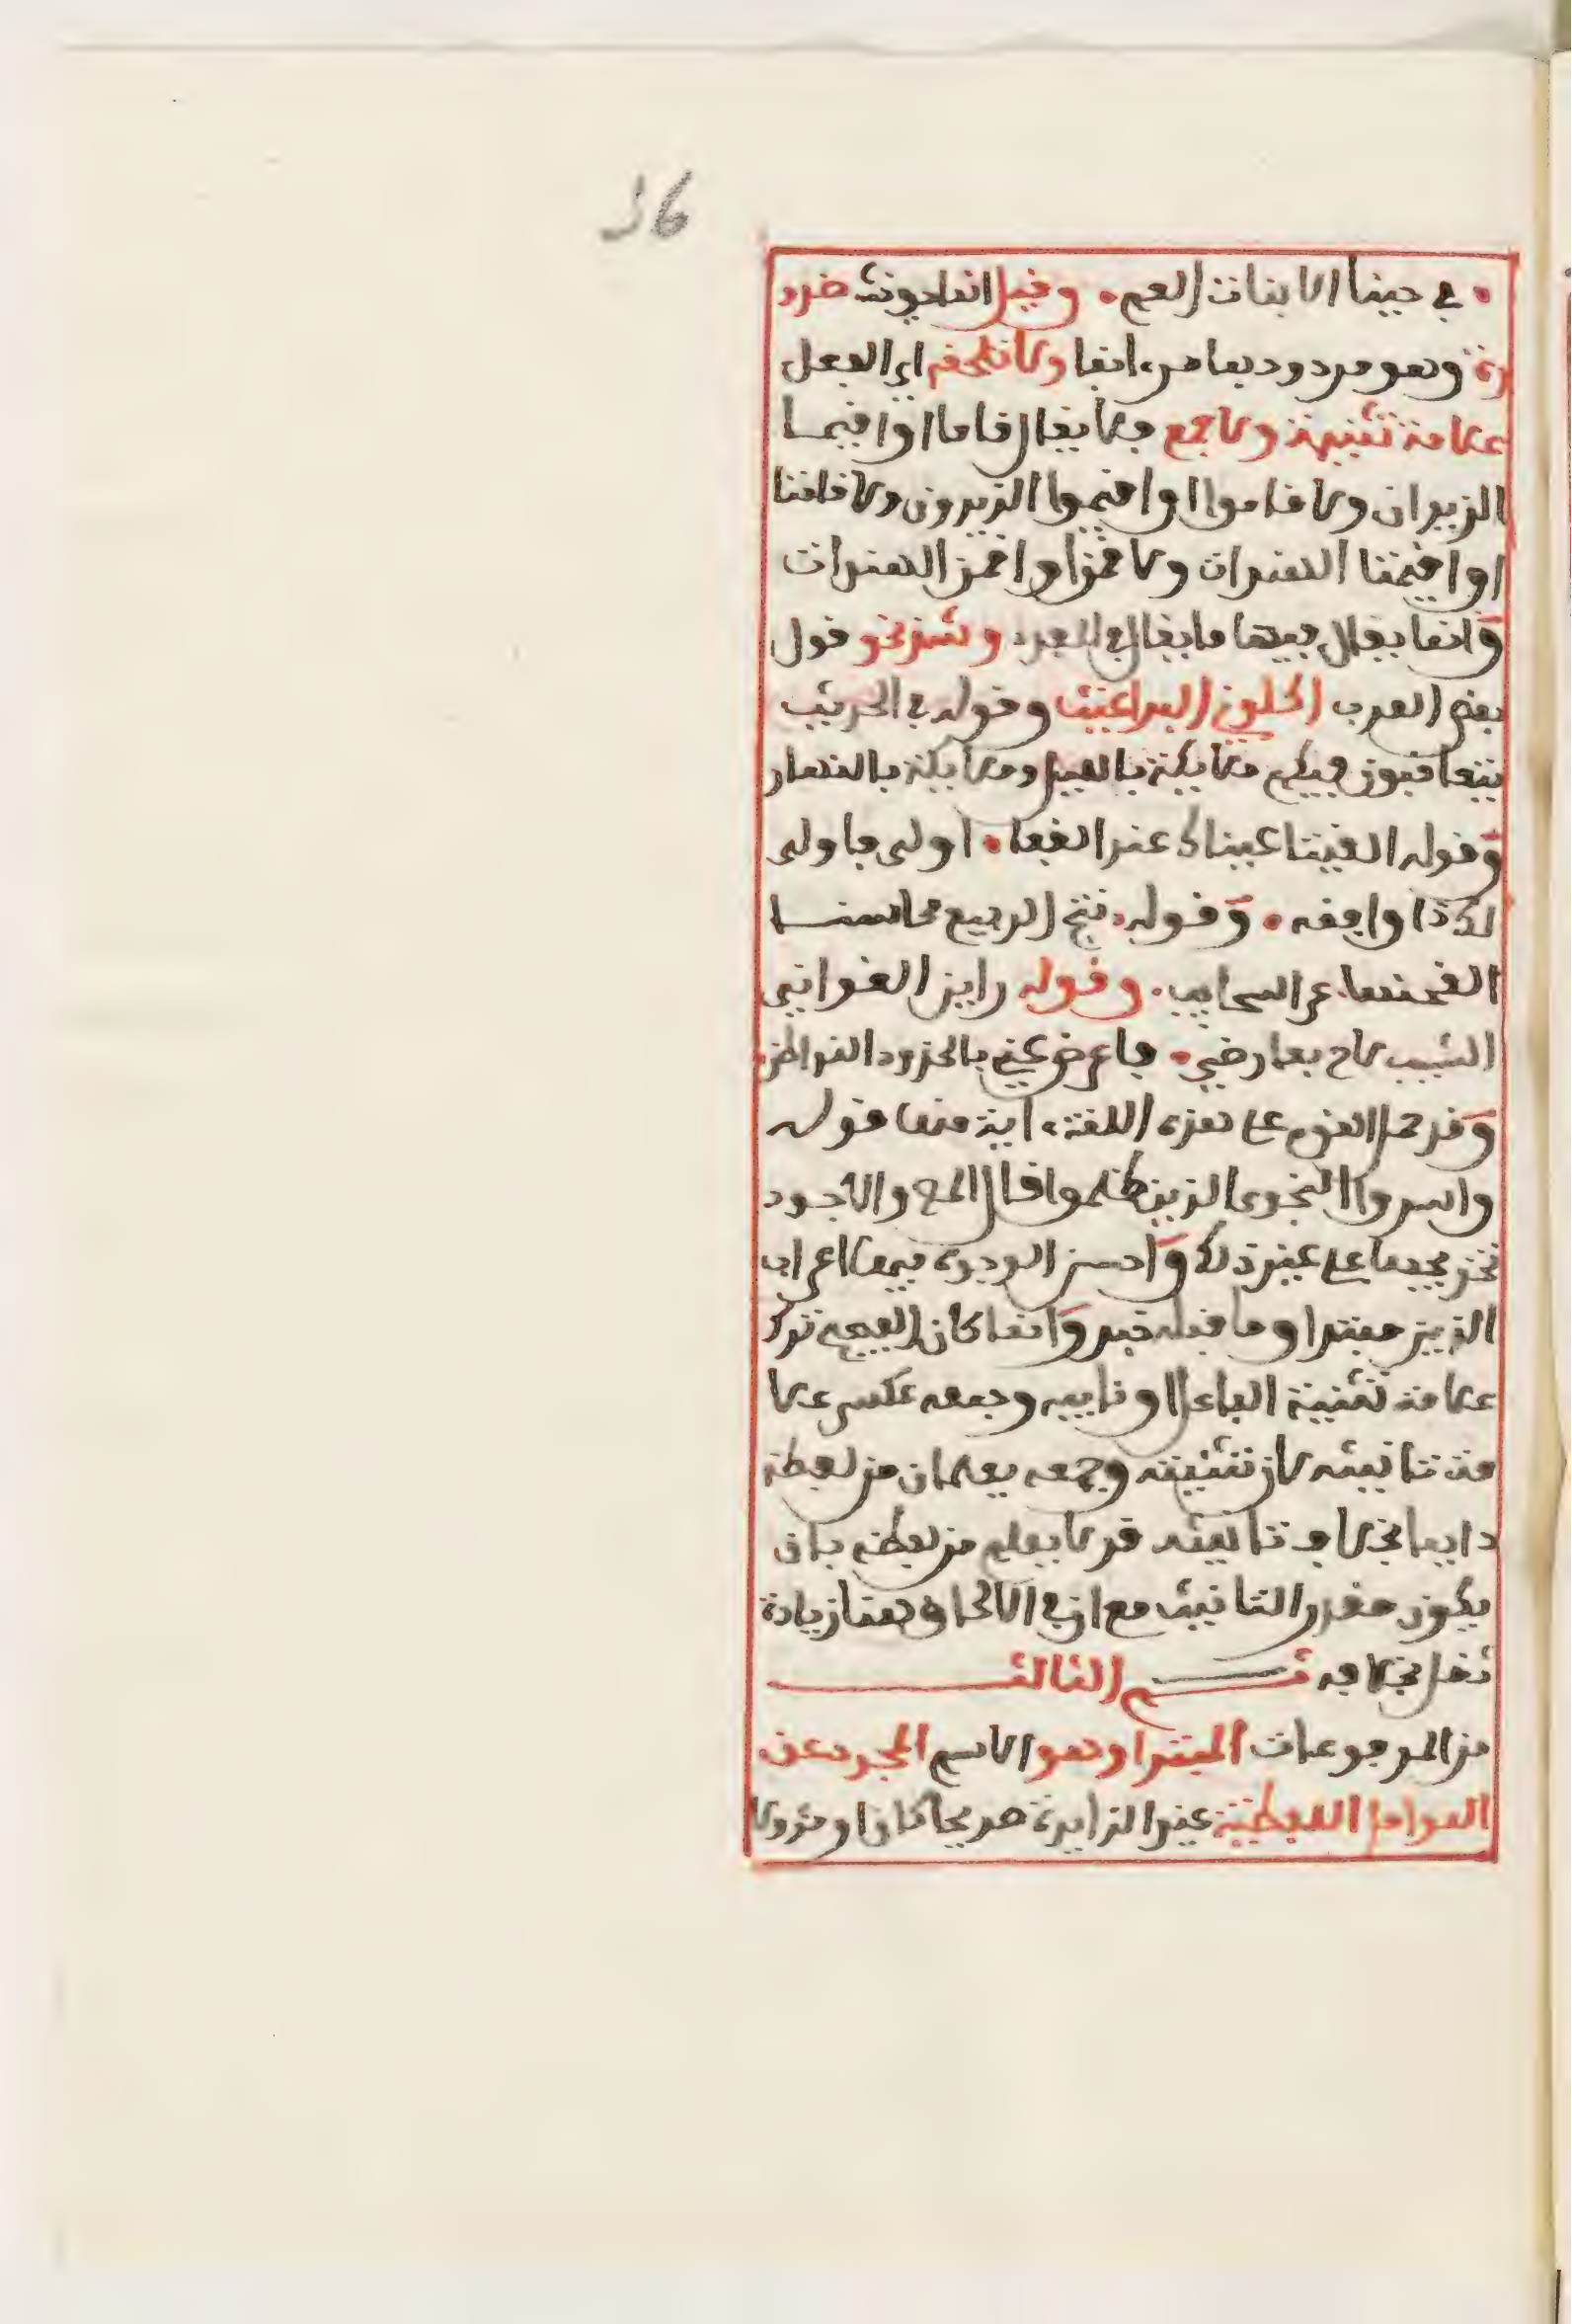 36
في حينا الا بنات العم • وقيل انما يونث ضرو
رة وهو مردود بما مر انفا ولا تلحقه اي الفعل
علامة تثنية ولا جمع فلا يقال قاما او اقيما
الزيدان ولا قاموا او اقيموا الزيدون ولا قامتا
او اقيمتا الهندان ولا قمن او اقمن الهندات
وانما يقال فيهما ما يقال في المفرد وشذ نحو قول
بعض العرب اكلوني البراغيث وقوله في الحديث
يتعاقبون فيكم ملايكة بالليل وملايكة بالنهار
وقوله الفيتا عيناك عند القفا • اولى فاولى
لك ذا واقيه • وقوله نتج الربيع محاسنا
القحنها غر السحايب • وقوله راين الغواني
الشيب لاح بعارضي • فاعرضن عني بالخدود النواظر
وقد حمل القوم على هذه اللغة اية منها قوله
واسروا النجوى الذين ظلموا قال المص والاجود
تخريجها على غير ذلك واحسن الوجوه فيها اعراب
الذين مبتدا وما قبله خبر وانما كان الفصيح ترك
علامة تثنية الفاعل او نايبه وجمعه عكس علا
مة تانيثه لان تثنيته وجمعه يعلمان من لفظه
دايما بخلاف تانيثه قد لا يعلم من لفظه بان
يكون مقدر التانيث مع ان في الالحاق هنا زيادة
ثقل بخلافه ثم الثالث
من المرفوعات المبتدا وهو الاسم المجرد عن
العوامل اللفظية غير الزايدة صريحا كان او مئولا